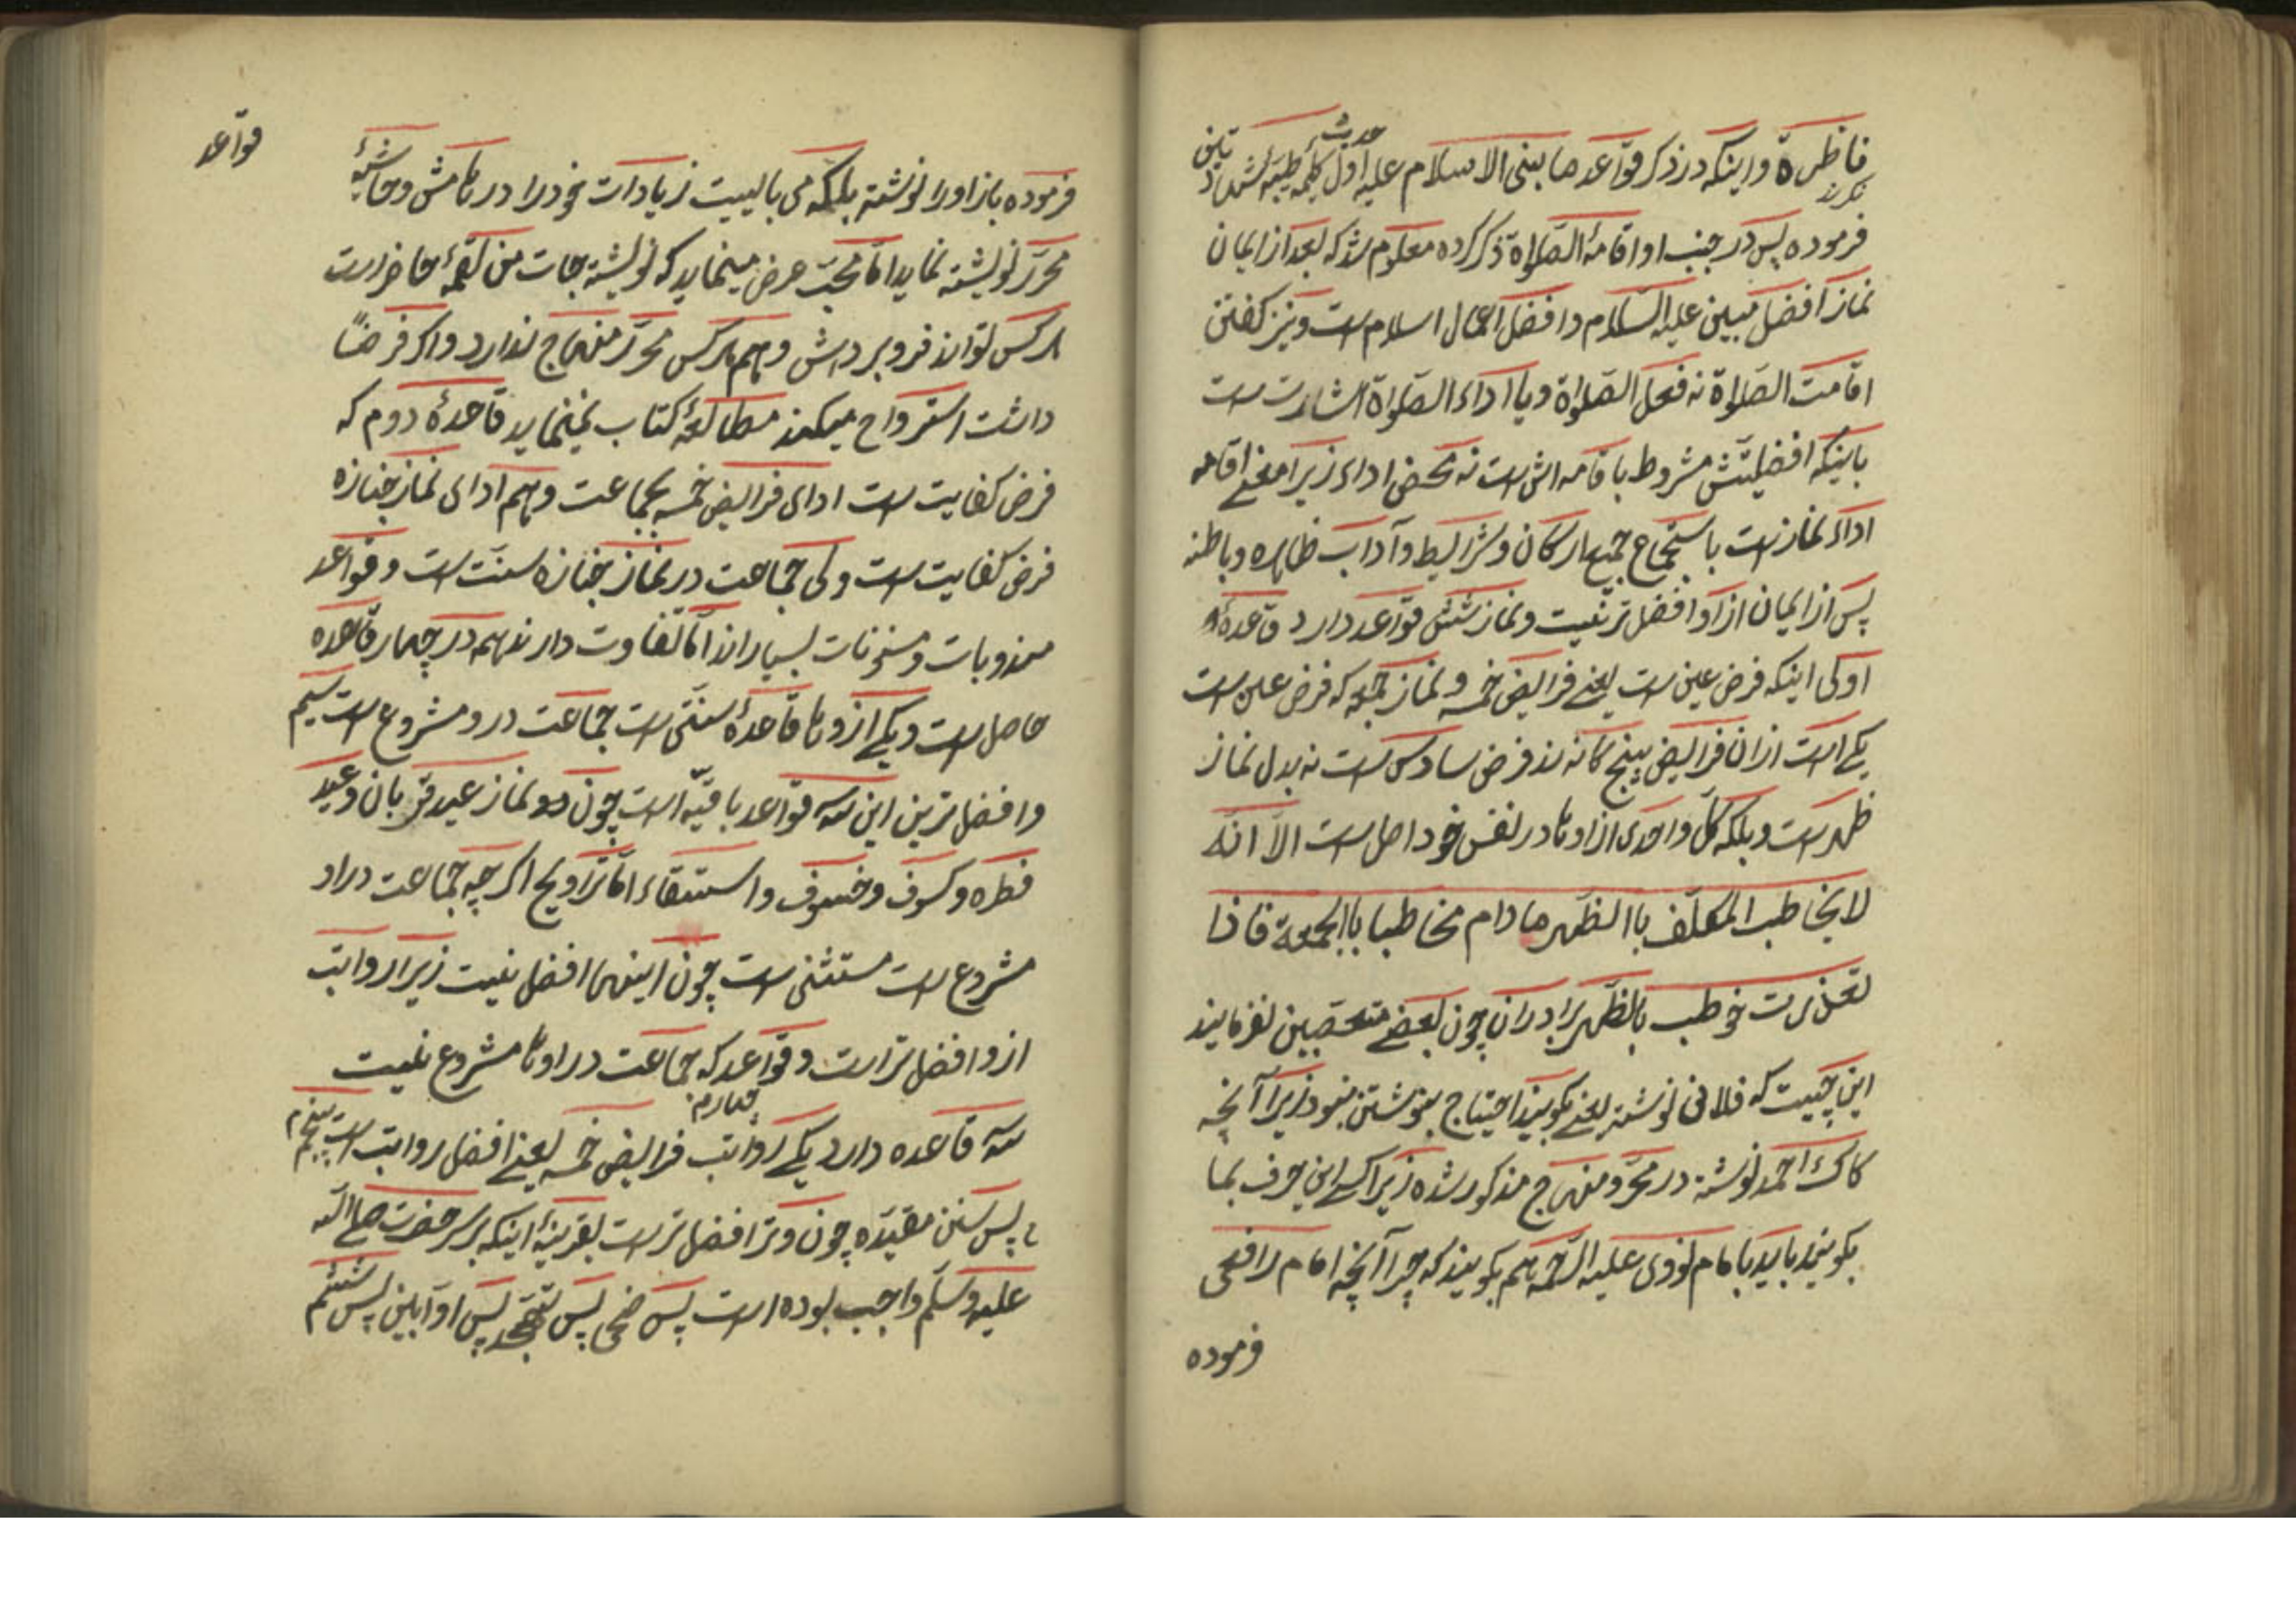 فاظرة و اینکه در ذکر قواعد ما بینی الاسلام علیه حدیث اول کلمه طیبه شهادتین
فرموده پس در جنب او اقامهٔ الصلواة ذکر کرده معلوم شد که بعد از ایمان
نماز افضل مبین علیه السلام و افضل اعمال اسلام است و نیز کفتن
اقامت الصلواة نه فعل الصلواة و یا اداء الصلواة اشارت است
باینکه افضلیتش مشروط باقامه اش است نه محض اداء زیرا معنی اقامه
اداء نماز است باستجماع جمیع ارکان و شرایط و آداب ظاهره و باطنه
پس از ایمان ازاو افضل تر نیست و نماز شش قواعد دارد قاعدهٔ
اولی اینکه فرض عین است یعنی فرایض خمسه و نماز جمعه که فرض عین است
یکی است ازان فرایض پنج کانه نه فرض سادس است نه بدل نماز
ظهر است و بلکه کل واحدی از اوها در نفس خود اصل است الا انه
لا یخاطب المکلف باالظهر مادام مخاطبا باالجمعة فاذا
تعذرت خوطب بالظهر برادران چون بعضی متعصبین نفرمایند
این چیست که فلانی نوشته یعنی بکویند احتیاج بنوشتن نبود زیرا آنچه
کاک احمد نوشته در محرر و منهاج مذکور شده زیرا کسی این حرف بما
بکویند باید بامام نووی علیه الرحمه هم بکویند که چرا آنچه امام رافعی
فرموده
قواعد
فرموده باز اورا نوشته بلکه می بایست زیادات خودرا در هامش و حاشیهٔ
محرر نویشته نماید اما محب عرض مینماید که نویشته جات من لقمهٔ حاضر است
هر کس تواند فرو بردش و هم هر کس محرر منهاج ندارد و اکر فرضا
داشت استرواح میکند مطالعهٔ کتاب نمینماید قاعدهٔ دوم که
فرض کفایت است ادای فرایض خمسه بجماعت و هم ادای نماز جنازه
فرض کفایت است ولی جماعت در نماز جنازه سنت است و قواعد
مندوبات و مسنونات بسیار اند اما تفاوت دارند هم در چهار قاعده
حاصل است و یکی ازوها قاعدهٔ سنتی است جماعت درو مشروع است سیم
و افضل ترین این سه قواعد باقیه است چون دو نماز عید قربان و عید
فطره و کسوف و خسوف و استسقاء اما تراویح اکر چه جماعت دراو
مشروع است مستثنی است چون اینهی افضل نیست زیرا رواتب
ازو افضل تر است و قواعد که جماعت در اوها مشروع نیست
سه قاعده دارد یکی رواتب چهارم فرایض خمسه یعنی افضل رواتب است پنجم
پس سنن مقیده چون وتر افضل تر است بقرینهٔ اینکه بر سر حضرت صلی الله
علیه وسلم واجب بوده است پس ضحی پس تهجد پس اوابین پس ششم